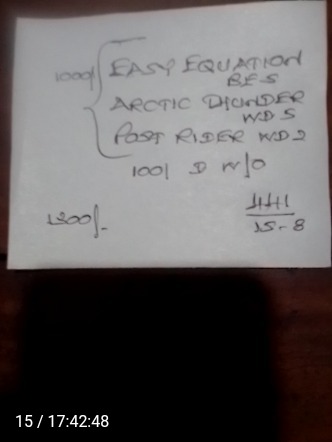 1000/-
EASY EQUATION
BES
ARCTIC DHUNDER
WD5
POST RIDER WD2
100/ D W/O
1200/-
15-8
15 / 17:42:48